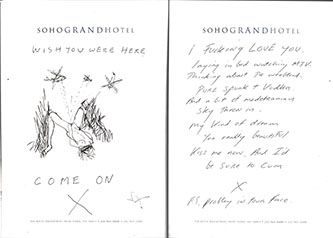 SOHOGRANDHOTEL
WISH YOU WERE HERE
COME ON
X
SOHOGRANDHOTEL
I FUCKING LOVE YOU.
laying in bed watching MTV.
Thinking about the weekend.
PURE spunk + Vodka
And a bit of mediteranian
Sky thrown in.
my kind of dream
You really beautiful
Kiss me now, And I'd
be sure to cum
X
PS. probley in your face.